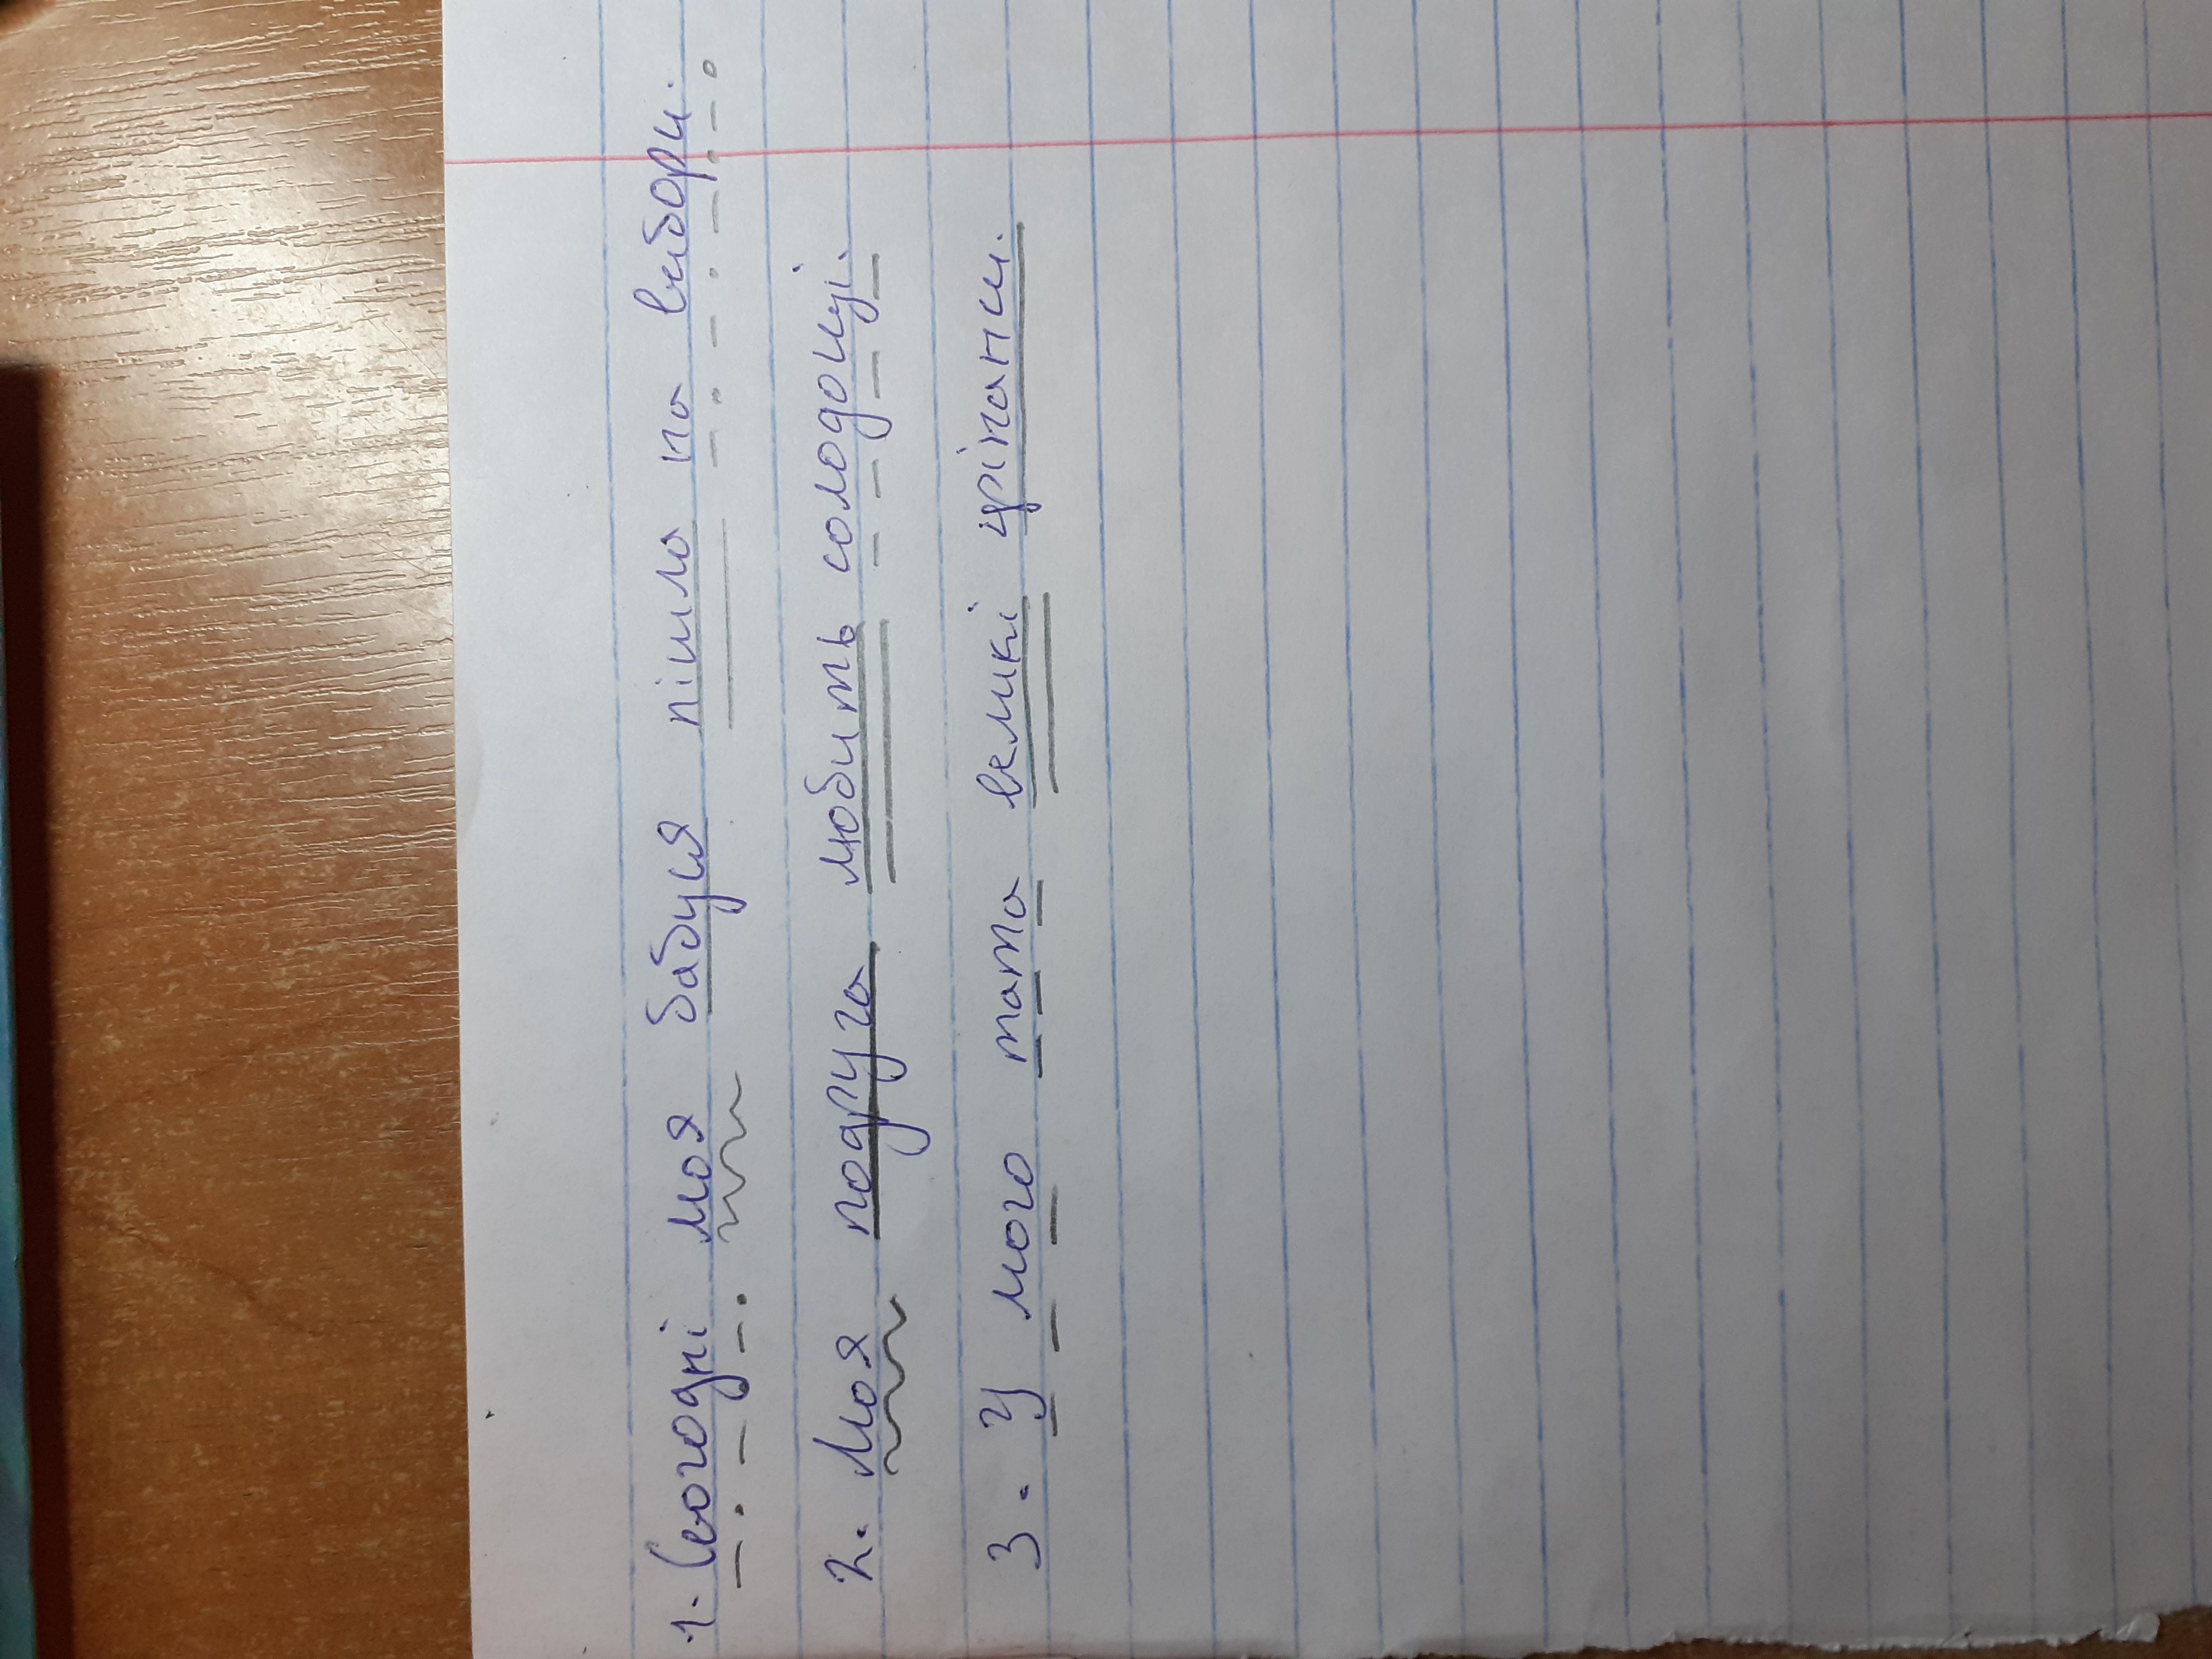 1. Сьогодні моя бабуся пішла на вибори.
2. Моя подруга любить солодощі.
3. У мого тата великі фінанси.